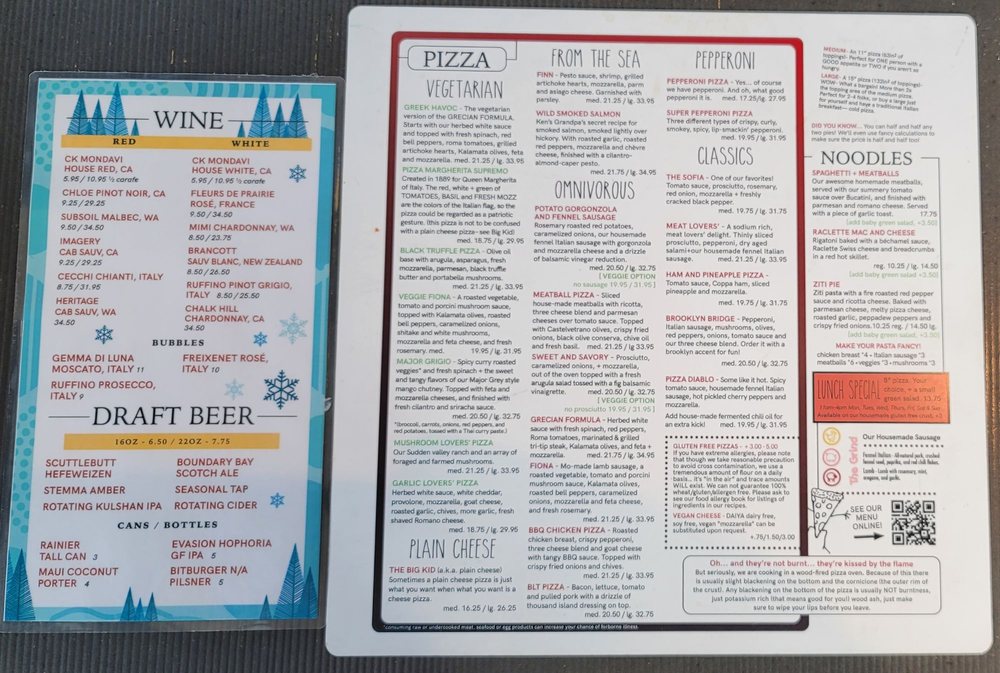 WINE
RED
CK MONDAVI
HOUSE RED, CA
5.95 / 10.95 ½ carafe
CHLOE PINOT NOIR, CA
9.25 / 29.25
SUBSOIL MALBEC, WA
9.50 / 34.50
IMAGERY
CAB SAUV, CA
9.25 / 29.25
CECCHI CHIANTI, ITALY
8.75 / 31.95
HERITAGE
CAB SAUV, WA
34.50
WHITE
CK MONDAVI
HOUSE WHITE, CA
5.95 / 10.95 ½ carafe
FLEURS DE PRAIRIE
ROSÉ, FRANCE
9.50 / 34.50
MIMI CHARDONNAY, WA
8.50 / 23.75
BRANCOTT
SAUV BLANC, NEW ZEALAND
8.50 / 26.50
RUFFINO PINOT GRIGIO,
ITALY 8.50 / 25.50
CHALK HILL
CHARDONNAY, CA
34.50
BUBBLES
GEMMA DI LUNA
MOSCATO, ITALY 11
RUFFINO PROSECCO,
ITALY 9
FREIXENET ROSÉ,
ITALY 10
DRAFT BEER
16OZ - 6.50 / 22OZ - 7.75
SCUTTLEBUTT
HEFEWEIZEN
STEMMA AMBER
ROTATING KULSHAN IPA
BOUNDARY BAY
SCOTCH ALE
SEASONAL TAP
ROTATING CIDER
CANS / BOTTLES
RAINIER
TALL CAN 3
MAUI COCONUT
PORTER 4
EVASION HOPHORIA
GF IPA 5
BITBURGER N/A
PILSNER 5
PIZZA
VEGETARIAN
GREEK HAVOC - The vegetarian
version of the GRECIAN FORMULA.
Starts with our herbed white sauce
and topped with fresh spinach, red
bell peppers, roma tomatoes, grilled
artichoke hearts, Kalamata olives, feta
and mozzarella. med. 21.25 / lg. 33.95
PIZZA MARGHERITA SUPREMO
Created in 1889 for Queen Margherita
of Italy. The red, white + green of
TOMATOES, BASIL and FRESH MOZZ
are the colors of the Italian flag, so the
pizza could be regarded as a patriotic
gesture. (this pizza is not to be confused
with a plain cheese pizza - see Big Kid!)
med. 18.75 / lg. 29.95
BLACK TRUFFLE PIZZA - Olive oil
base with arugula, asparagus, fresh
mozzarella, parmesan, black truffle
butter and portabella mushrooms.
med. 21.25 / lg. 33.95
VEGGIE FIONA - A roasted vegetable,
tomato and porcini mushroom sauce,
topped with Kalamata olives, roasted
bell peppers, caramelized onions,
shitake and white mushrooms,
mozzarella and feta cheese, and fresh
rosemary. med. 19.95 / lg. 31.95
MAJOR GRIGIO - Spicy curry roasted
veggies* and fresh spinach + the sweet
and tangy flavors of our Major Grey style
mango chutney. Topped with feta and
mozzarella cheeses, and finished with
fresh cilantro and sriracha sauce.
med. 20.50 / lg. 32.75
*(broccoli, carrots, onions, red peppers, and
red potatoes, tossed with a Thai curry paste.)
MUSHROOM LOVERS' PIZZA
Our Sudden valley ranch and an array of
foraged and farmed mushrooms.
med. 21.25 / lg. 33.95
GARLIC LOVERS' PIZZA
Herbed white sauce, white cheddar,
provolone, mozzarella, goat cheese,
roasted garlic, chives, more garlic, fresh
shaved Romano cheese.
med. 18.75 / lg. 29.95
PLAIN CHEESE
THE BIG KID (a.k.a. plain cheese)
Sometimes a plain cheese pizza is just
what you want when what you want is a
cheese pizza.
med. 16.25 / lg. 26.25
*consuming raw or undercooked meat, seafood or egg products can increase your chance of forborns illness.
FROM THE SEA
FINN - Pesto sauce, shrimp, grilled
artichoke hearts, mozzarella, parm
and asiago cheese. Garnished with
parsley. med. 21.25 / lg. 33.95
WILD SMOKED SALMON
Ken's Grandpa's secret recipe for
smoked salmon, smoked lightly over
hickory. With roasted garlic, roasted
red peppers, mozzarella and chèvre
cheese, finished with a cilantro-
almond-caper pesto.
med. 21.75 / lg. 34.95
OMNIVOROUS
POTATO GORGONZOLA
AND FENNEL SAUSAGE
Rosemary roasted red potatoes,
caramelized onions, our housemade
fennel Italian sausage with gorgonzola
and mozzarella cheese and a drizzle
of balsamic vinegar reduction.
med. 20.50 / lg. 32.75
[VEGGIE OPTION
no sausage 19.95 / 31.95]
MEATBALL PIZZA - Sliced
house-made meatballs with ricotta,
three cheese blend and parmesan
cheeses over tomato sauce. Topped
with Castelvetrano olives, crispy fried
onions, black olive conserva, chive oil
and fresh basil. med. 21.25 / lg. 33.95
SWEET AND SAVORY - Prosciutto,
caramelized onions, + mozzarella,
out of the oven topped with a fresh
arugula salad tossed with a fig balsamic
vinaigrette. med. 20.50 / lg. 32.75
[VEGGIE OPTION
no prosciutto 19.95 / 31.95]
GRECIAN FORMULA - Herbed white
sauce with fresh spinach, red peppers,
Roma tomatoes, marinated & grilled
tri-tip steak, Kalamata olives, and feta +
mozzarella. med. 21.75 / lg. 34.95
FIONA - Mo-made lamb sausage, a
roasted vegetable, tomato and porcini
mushroom sauce, Kalamata olives,
roasted bell peppers, caramelized
onions, mozzarella and feta cheese,
and fresh rosemary.
med. 21.25 / lg. 33.95
BBQ CHICKEN PIZZA - Roasted
chicken breast, crispy pepperoni,
three cheese blend and goat cheese
with tangy BBQ sauce. Topped with
crispy fried onions and chives.
med. 21.25 / lg. 33.95
BLT PIZZA - Bacon, lettuce, tomato
and pulled pork with a drizzle of
thousand island dressing on top.
med. 20.50 / lg. 32.75
PEPPERONI
PEPPERONI PIZZA - Yes... of course
we have pepperoni. And oh, what good
pepperoni it is. med. 17.25 / lg. 27.95
SUPER PEPPERONI PIZZA
Three different types of crispy, curly,
smokey, spicy, lip-smackin' pepperoni.
med. 19.95 / lg. 31.95
CLASSICS
THE SOFIA - One of our favorites!
Tomato sauce, prosciutto, rosemary,
red onion, mozzarella + freshly
cracked black pepper.
med. 19.75 / lg. 31.75
MEAT LOVERS' - A sodium rich,
meat lovers' delight. Thinly sliced
prosciutto, pepperoni, dry aged
salami+our housemade fennel Italian
sausage. med. 21.25 / lg. 33.95
HAM AND PINEAPPLE PIZZA -
Tomato sauce, Coppa ham, sliced
pineapple and mozzarella.
med. 19.75 / lg. 31.75
BROOKLYN BRIDGE - Pepperoni,
Italian sausage, mushrooms, olives,
red peppers, onions, tomato sauce and
our three cheese blend. Order it with a
brooklyn accent for fun!
med. 20.50 / lg. 32.75
PIZZA DIABLO - Some like it hot. Spicy
tomato sauce, housemade fennel Italian
sausage, hot pickled cherry peppers and
mozzarella.
Add house-made fermented chili oil for
an extra kick! med. 19.95 / lg. 31.95
GLUTEN FREE PIZZAS - + 3.00 - 5.00
If you have extreme allergies, please note
that though we take reasonable precaution
to avoid cross contamination, we use a
tremendous amount of flour on a daily
basis... it's "in the air" and trace amounts
WILL exist. We can not guarantee 100%
wheat/gluten/allergen free. Please ask to
see our food allergy book for listings of
ingredients in our recipes.
VEGAN CHEESE - DAIYA dairy free,
soy free, vegan "mozzarella" can be
substituted upon request.
+.75/1.50/3.00
MEDIUM- An 11" pizza (63in² of
toppings)- Perfect for ONE person with a
GOOD appetite or TWO if you aren't as
hungry.
LARGE- A 15" pizza (133in² of toppings)-
WOW- What a bargain! More than 2x
the topping area of the medium pizza.
Perfect for 2-4 folks, or buy a large just
for yourself and have a traditional Italian
breakfast— cold pizza.
DID YOU KNOW... You can half and half any
two pies! We'll even use fancy calculations to
make sure the price is half and half too!
NOODLES
SPAGHETTI + MEATBALLS
Our awesome homemade meatballs,
served with our summery tomato
sauce over Bucatini, and finished with
parmesan and romano cheese. Served
with a piece of garlic toast. 17.75
[add baby green salad, +3.50]
RACLETTE MAC AND CHEESE
Rigatoni baked with a béchamel sauce,
Raclette Swiss cheese and breadcrumbs
in a red hot skillet.
reg. 10.25 / lg. 14.50
[add baby green salad +3.50]
ZITI PIE
Ziti pasta with a fire roasted red pepper
sauce and ricotta cheese. Baked with
parmesan cheese, melty pizza cheese,
roasted garlic, peppadew peppers and
crispy fried onions.10.25 reg. / 14.50 lg.
[add baby green salad, +3.50]
MAKE YOUR PASTA FANCY!
chicken breast +4 + Italian sausage +3
meatballs +6 +veggies +3 +mushrooms +3
LUNCH SPECIAL
8" pizza. Your
choice, + a small
green salad. 13.75
The Grind
Our Housemade Sausage
Fennel Italian- All-natural pork, crushed
fennel seed, paprika, and red chili flakes.
Lamb- Lamb with rosemary, mint,
oregano, red garlic.
SEE OUR
MENU
ONLINE!
Oh... and they're not burnt... they're kissed by the flame
But seriously, we are cooking in a wood-fired pizza oven. Because of this there
is usually slight blackening on the bottom and the cornicione (the outer rim of
the crust). Any blackening on the bottom of the pizza is usually NOT burntness,
just potassium rich (that means good for you!) wood ash, just make
sure to wipe your lips before you leave.